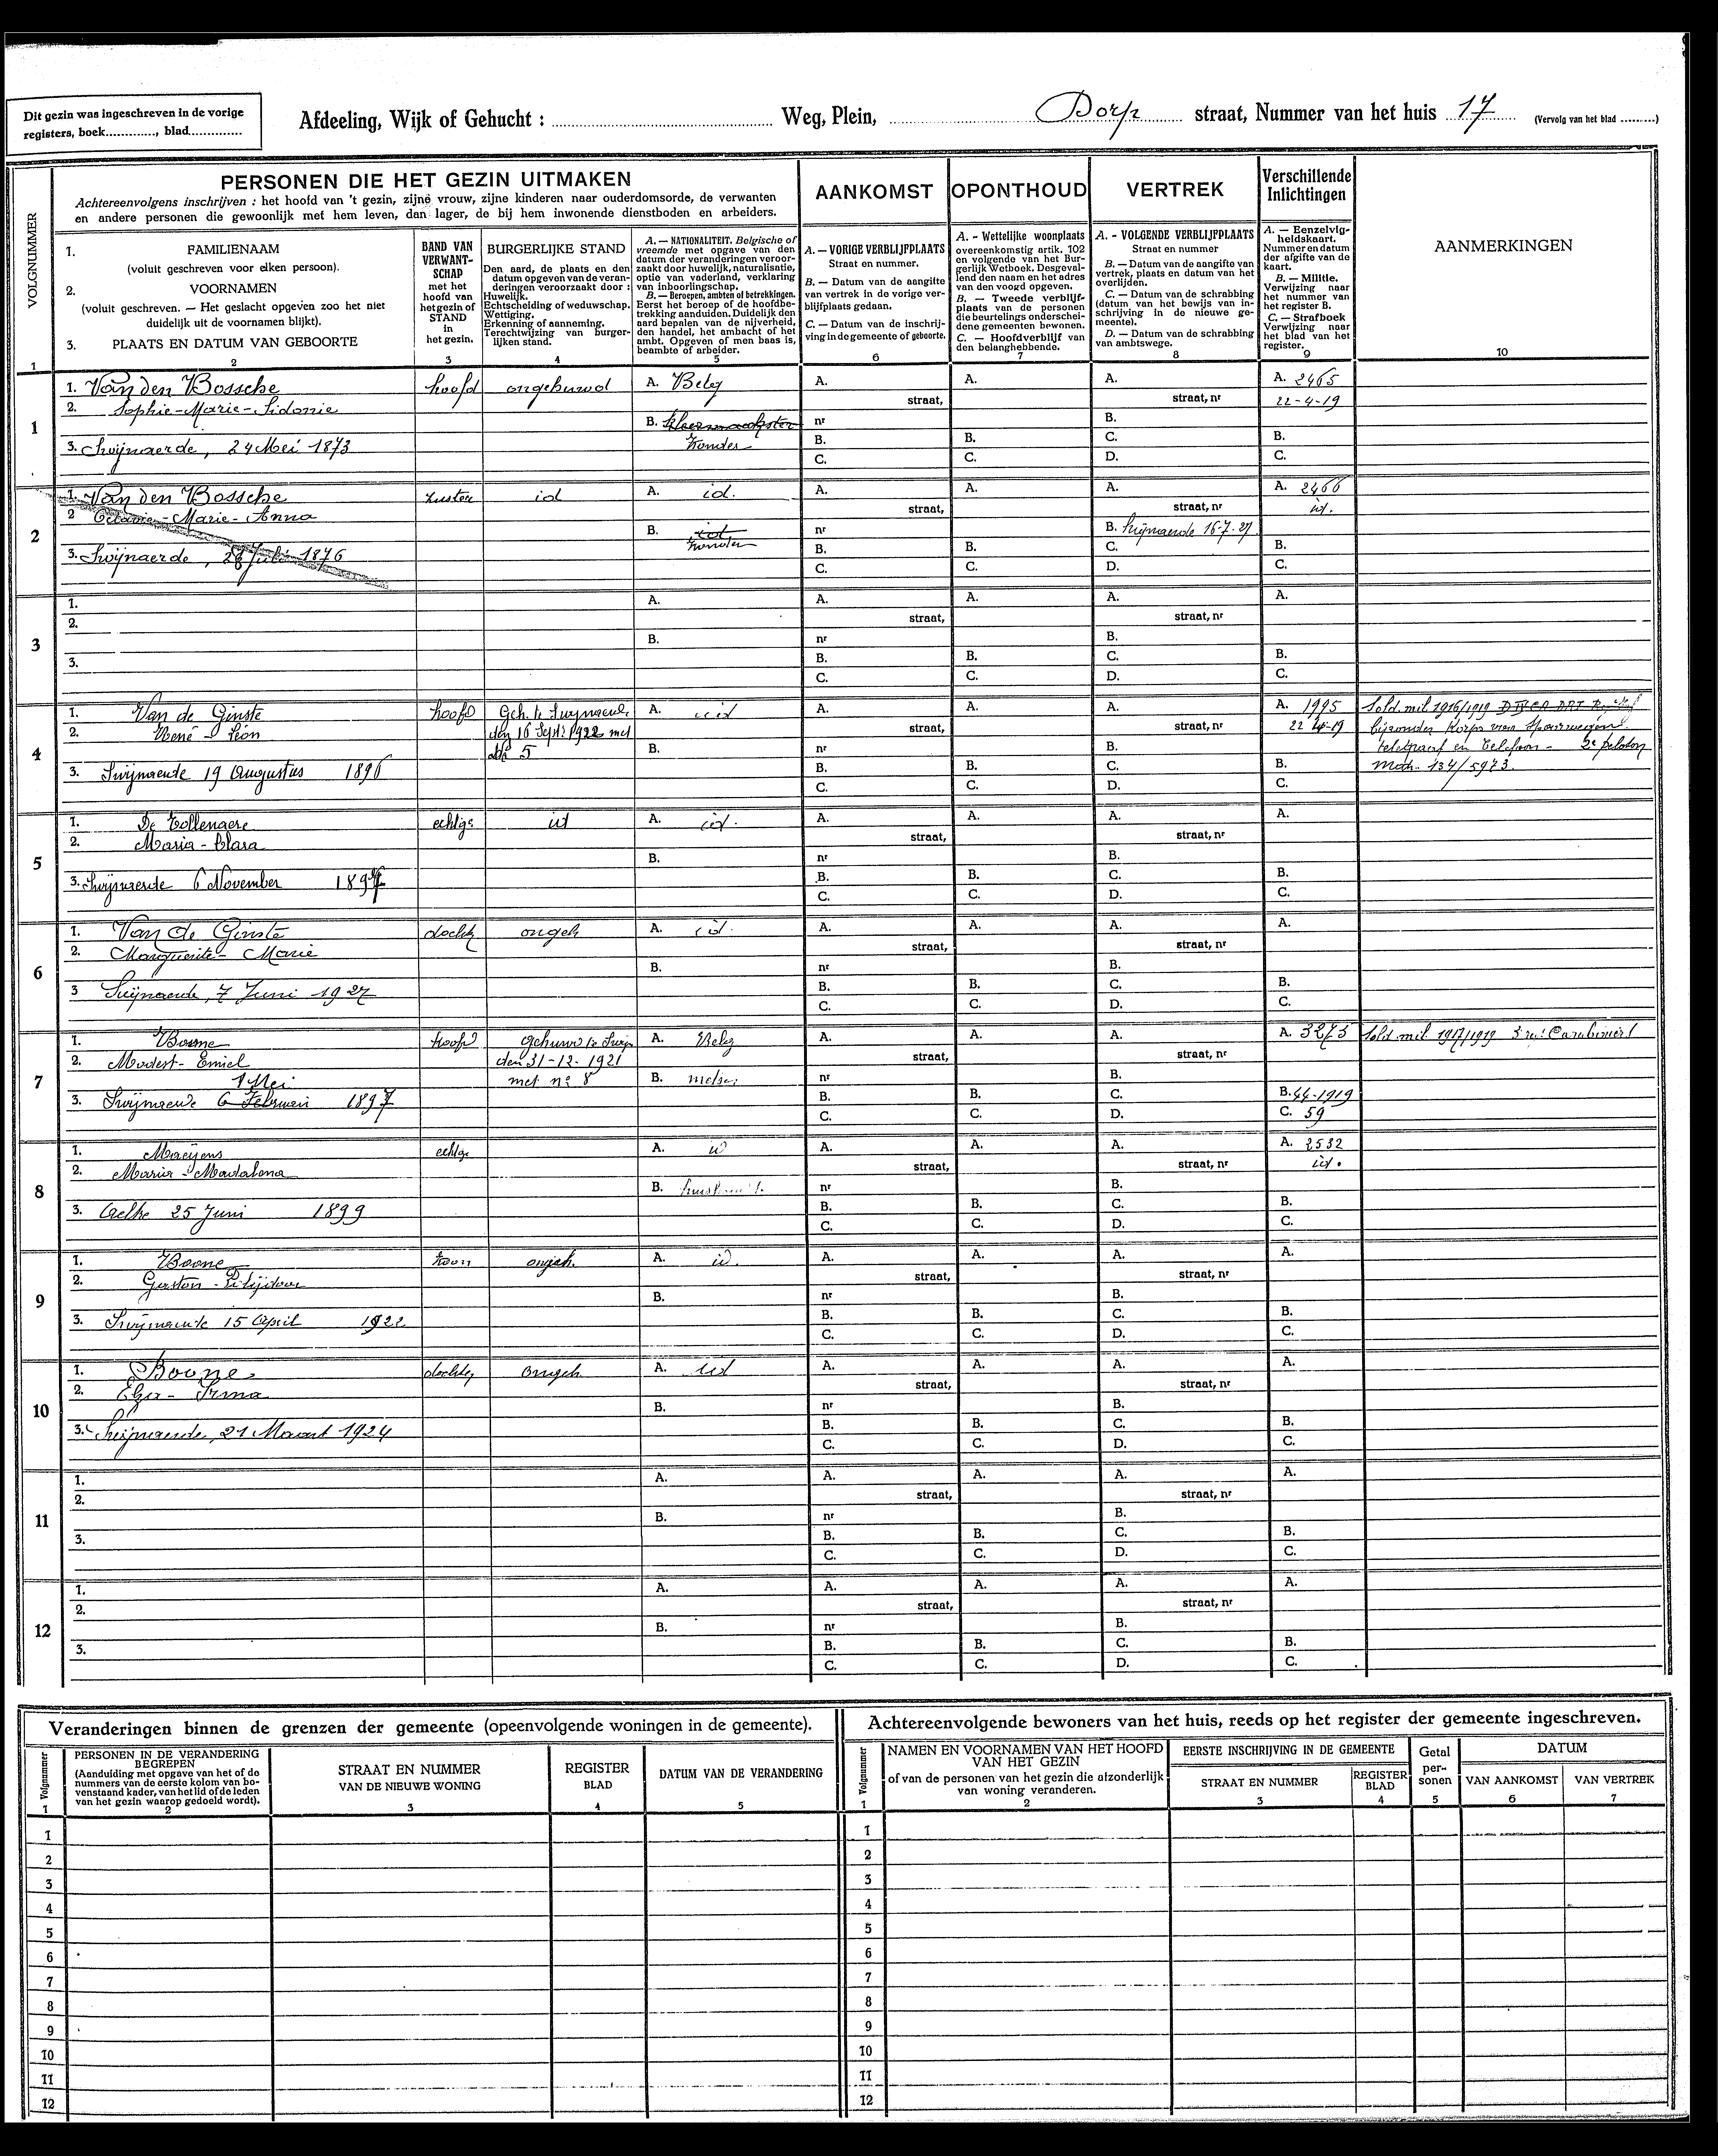 Dit gezin was ingeschreven in de vorige
registers, boek............, blad.............
Afdeeling, Wijk of Gehucht : Weg, Plein, Dorp straat, Nummer van het huis 17 (Vervolg van het blad .........)
VOLGNUMMER
1
PERSONEN DIE HET GEZIN UITMAKEN
Achtereenvolgens inschrijven : het hoofd van 't gezin, zijne vrouw, zijne kinderen naar ouderdomsorde, de verwanten
en andere personen die gewoonlijk met hem leven, dan lager, de bij hem inwonende dienstboden en arbeiders.
1. FAMILIENAAM
(voluit geschreven voor elken persoon).
2. VOORNAMEN
(voluit geschreven. — Het geslacht opgeven zoo het niet
duidelijk uit de voornamen blijkt).
3. PLAATS EN DATUM VAN GEBOORTE
2
BAND VAN
VERWANT-
SCHAP
met het
hoofd van
het gezin of
STAND
in
het gezin.
3
BURGERLIJKE STAND
Den aard, de plaats en den
datum opgeven van de veran-
deringen veroorzaakt door :
Huwelijk.
Echtscheiding of weduwschap.
Wettiging.
Erkenning of aanneming.
Terechtwijzing van burger-
lijken stand.
4
A. — NATIONALITEIT. Belgische of
vreemde met opgave van den
datum der veranderingen veroor-
zaakt door huwelijk, naturalisatie,
optie van vaderland, verklaring
van inboorlingschap.
B. — Beroepen, ambten of betrekkingen.
Eerst het beroep of de hoofdbe-
trekking aanduiden. Duidelijk den
aard bepalen van de nijverheid,
den handel, het ambacht of het
ambt. Opgeven of men baas is,
beambte of arbeider.
5
AANKOMST
A. — VORIGE VERBLIJFPLAATS
Straat en nummer.
B. — Datum van de aangifte
van vertrek in de vorige ver-
blijfplaats gedaan.
C. — Datum van de inschrij-
ving in de gemeente of geboorte.
6
OPONTHOUD
A. - Wettelijke woonplaats
overeenkomstig artik. 102
en volgende van het Bur-
gerlijk Wetboek. Desgeval-
lend den naam en het adres
van den voogd opgeven.
B. — Tweede verblijf-
plaats van de personen
die beurtelings onderschei-
dene gemeenten bewonen.
C. — Hoofdverblijf van
den belanghebbende.
7
VERTREK
A. - VOLGENDE VERBLIJFPLAATS
Straat en nummer
B. — Datum van de aangifte van
vertrek, plaats en datum van het
overlijden.
C. — Datum van de schrabbing
(datum van het bewijs van in-
schrijving in de nieuwe ge-
meente).
D. — Datum van de schrabbing
van ambtswege.
8
Verschillende
Inlichtingen
A. — Eenzelvig-
heidskaart.
Nummer en datum
der afgifte van de
kaart.
B. — Militie.
Verwijzing naar
het nummer van
het register B.
C. — Strafboek
Verwijzing naar
het blad van het
register.
9
AANMERKINGEN
10
1
1. Van den Bossche hoofd ongehuwd A. Belg A. A. A. A. 2465
2. Sophie-Marie-Sidonie straat, straat, nr 22-4-19
B. Kleermaakster nr B.
zonder B. B. C. B.
3. Swijnaerde, 24 Mei 1873 C. C. D. C.
2
1. Van den Bossche zuster id A. id. A. A. A. A. 2466
2 Octavie-Marie-Anna straat, straat, nr id.
B. id nr B. Swijnaerde 16-7-27
zonder B. B. C. B.
3. Swijnaerde, 28 Juli 1876 C. C. D. C.
3
1. A. A. A. A. A.
2. straat, straat, nr
B. nr B.
3. B. B. C. B.
C. C. D. C.
4
1. Van de Ginste hoofd Geh. te Swijnaerde A. id A. A. A. A. 1995 Sold. mil. 1916/1919
2. René-Léon den 16 Sept. 1922 met straat, straat, nr 22-4-19 bijzonder Korps van Spoorwegen
No 5 B. nr B. telegraaf en telefoon - 2e peloton
3. Swijnaerde 19 Augustus 1896 B. B. C. B. Matr. 134/5973.
C. C. D. C.
5
1. De Tollenaere echtge id A. id. A. A. A. A.
2. Maria-Clara straat, straat, nr
B. nr B.
3. Swijnaerde 6 November 1897 B. B. C. B.
C. C. D. C.
6
1. Van de Ginste docht ongeh A. id. A. A. A. A.
2. Marguerite-Marie straat, straat, nr
B. nr B.
3 Swijnaerde, 7 Juni 1927 B. B. C. B.
C. C. D. C.
7
1. Boone hoofd gehuwd te Swijn A. Belg A. A. A. A. 3273 Sold. mil. 1917/1919 3 reg. Carabiniers
2. Modest-Emiel den 31-12-1921 straat, straat, nr
1 Mei met no 8 B. metser nr B.
3. Swijnaerde 6 Februari 1897 B. B. C. B. 44-1919
C. C. D. C. 59
8
1. Maeyens echtge A. id A. A. A. A. 2532
2. Maria-Madalena straat, straat, nr id.
B. nr B.
3. Aelke 25 Juni 1899 B. B. C. B.
C. C. D. C.
9
1. Boone zoon ongeh. A. id. A. A. A. A.
2. Gaston straat, straat, nr
B. nr B.
3. Swijnaerde 15 April 1922 B. B. C. B.
C. C. D. C.
10
1. Boone dochter ongeh A. id A. A. A. A.
2. Elza-Irma straat, straat, nr
B. nr B.
3. Swijnaerde, 21 Maart 1924 B. B. C. B.
C. C. D. C.
11
1. A. A. A. A. A.
2. straat, straat, nr
B. nr B.
3. B. B. C. B.
C. C. D. C.
12
1. A. A. A. A. A.
2. straat, straat, nr
B. nr B.
3. B. B. C. B.
C. C. D. C.
Veranderingen binnen de grenzen der gemeente (opeenvolgende woningen in de gemeente).
Volgnummer
1
PERSONEN IN DE VERANDERING
BEGREPEN
(Aanduiding met opgave van het of de
nummers van de eerste kolom van bo-
venstaand kader, van het lid of de leden
van het gezin waarop gedoeld wordt).
2
STRAAT EN NUMMER
VAN DE NIEUWE WONING
3
REGISTER
BLAD
4
DATUM VAN DE VERANDERING
5
1
2
3
4
5
6
7
8
9
10
11
12
Achtereenvolgende bewoners van het huis, reeds op het register der gemeente ingeschreven.
Volgnummer
1
NAMEN EN VOORNAMEN VAN HET HOOFD
VAN HET GEZIN
of van de personen van het gezin die afzonderlijk
van woning veranderen.
2
EERSTE INSCHRIJVING IN DE GEMEENTE
STRAAT EN NUMMER
3
REGISTER
BLAD
4
Getal
per-
sonen
5
DATUM
VAN AANKOMST
6
VAN VERTREK
7
1
2
3
4
5
6
7
8
9
10
11
12